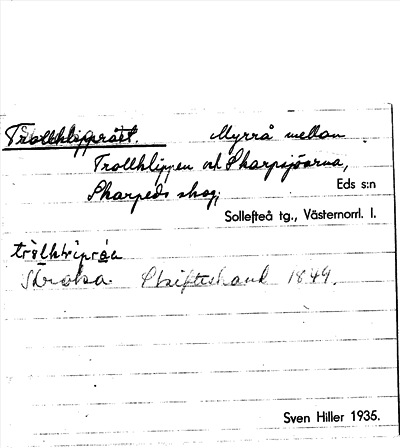 Trollklipprået. Myrrå mellan
Trollklippen och Skarpsjöarna,
Skarpeds skog; Eds s:n
Sollefteå tg., Västernorrl. l.
Skifteshand 1849.
Sven Hiller 1935.